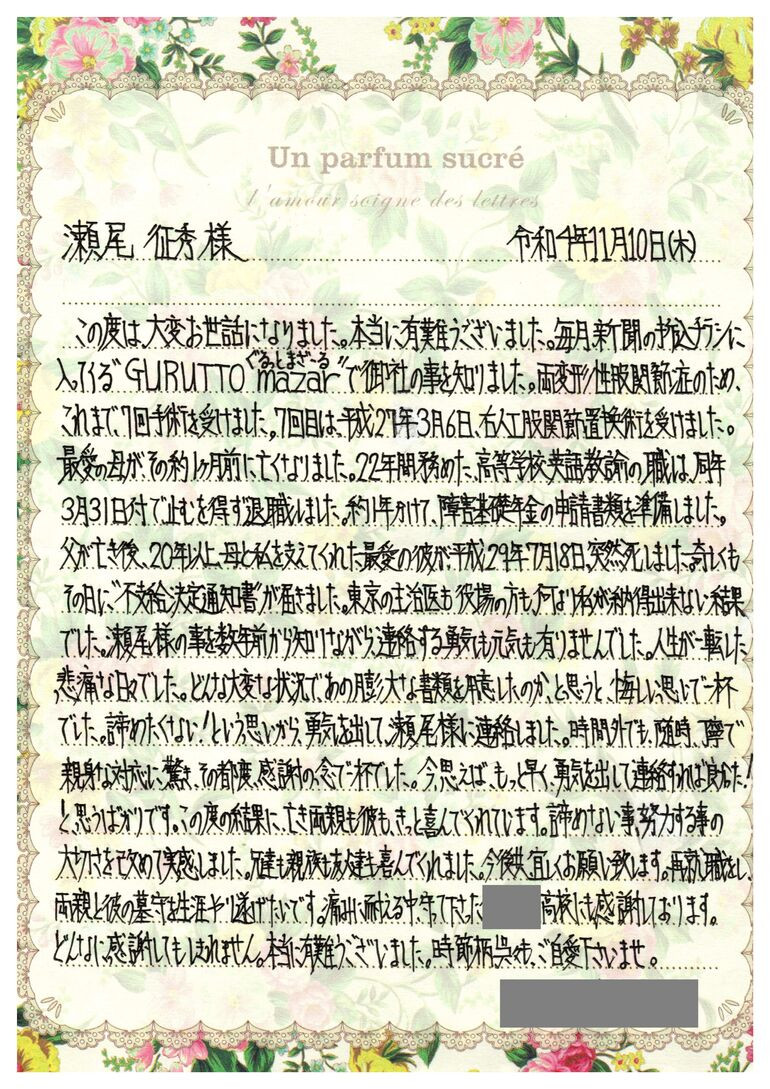 Un parfum sucré
l'amour soigne des lettres
瀬尾 征秀様 令和4年11月10日(木)
この度は、大変お世話になりました。本当に有難うございました。毎月新聞の折込チラシに
入ってくる"GURUTTO mazar"で御社の事を知りました。両変形性股関節症のため、
ぐるっとまざーる
これまで、7回手術を受けました。7回目は、平成27年3月6日、右人工股関節置換術を受けました。
最愛の母が、その約1ヶ月前に亡くなりました。22年間務めた、高等学校英語教諭の職は、同年
3月31日付で止むを得ず退職しました。約1年かけて、障害基礎年金の申請書類を準備しました。
父が亡き後、20年以上、母と私を支えてくれた最愛の彼が、平成29年7月18日、突然死しました。奇しくも
その日に、"不支給決定通知書"が届きました。東京の主治医も役場の方も、何より私が納得出来ない結果
でした。瀬尾様の事を数年前から知りながら、連絡する勇気も元気も有りませんでした。人生が一転した
悲痛な日々でした。どんな大変な状況であの膨大な書類を用意したのか、と思うと、悔しい思いで一杯
でした。諦めたくない!という思いから、勇気を出して、瀬尾様に連絡しました。時間外でも、随時、丁寧で
親身な対応に驚き、その都度、感謝の念で一杯でした。今思えば、もっと早く、勇気を出して連絡すれば良かった!
と、思うばかりです。この度の結果に、亡き両親も彼も、きっと喜んでくれています。諦めない事、努力する事の
大切さを改めて実感しました。兄達も親族も友達も喜んでくれました。今後共宜しくお願い致します。再就職をし、
両親と彼の墓守を生涯やり遂げたいです。痛みに耐える中、守って下さった 高校にも感謝しております。
どんなに感謝してもしきれません。本当に有難うございました。時節柄呉々も、ご自愛下さいませ。